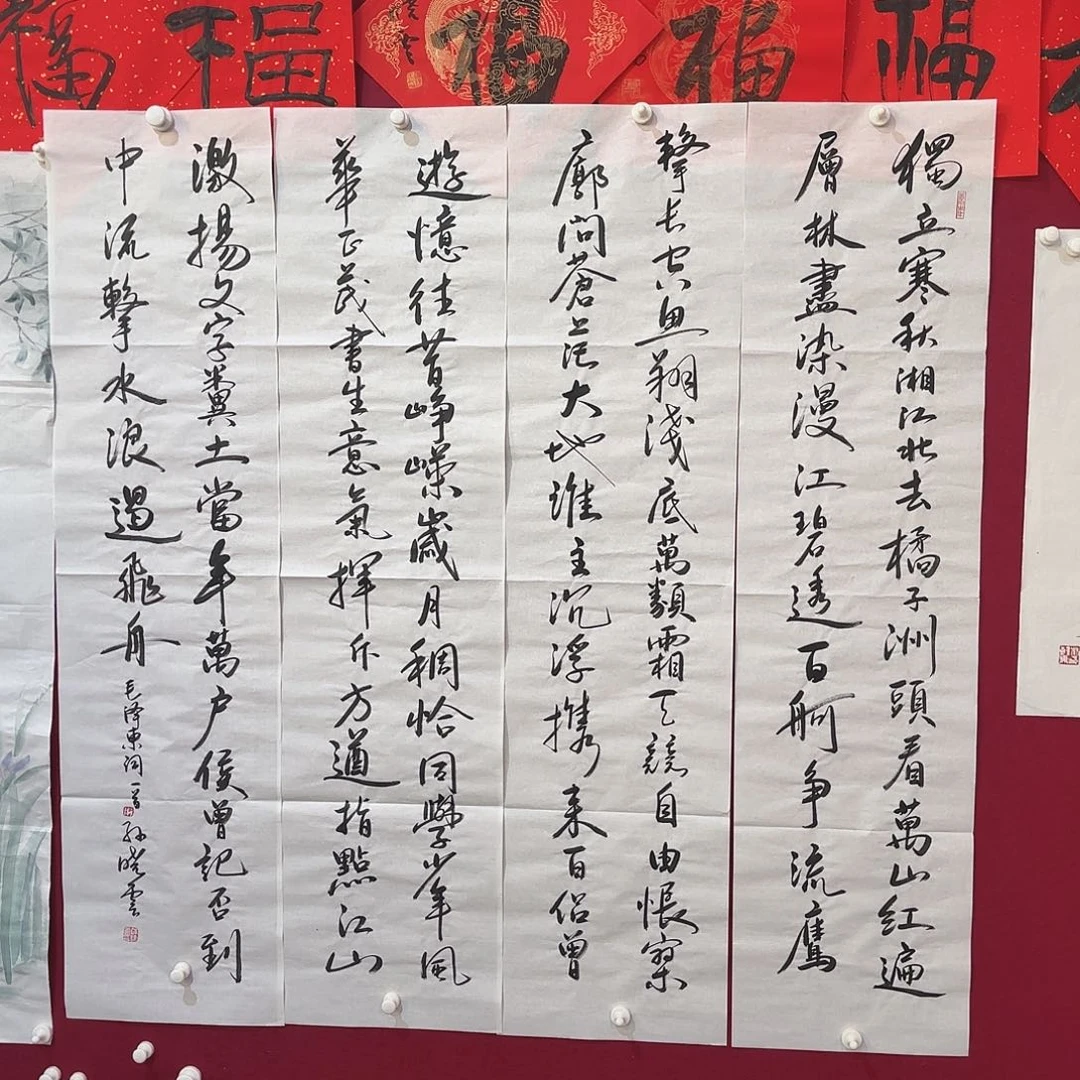 福 福 福 福 福
獨立寒秋湘江北去橘子洲頭看萬山紅遍
層林盡染漫江碧透百舸争流鷹
擊長空魚翔淺底萬類霜天競自由悵寥
廓問蒼茫大地誰主沉浮攜来百侣曾
遊憶往昔崢嶸歲月稠恰同學少年風
華正茂書生意氣揮斥方遒指點江山
激揚文字糞土當年萬户侯曾記否到
中流擊水浪遏飛舟 毛泽東詞一首 孙曉雲